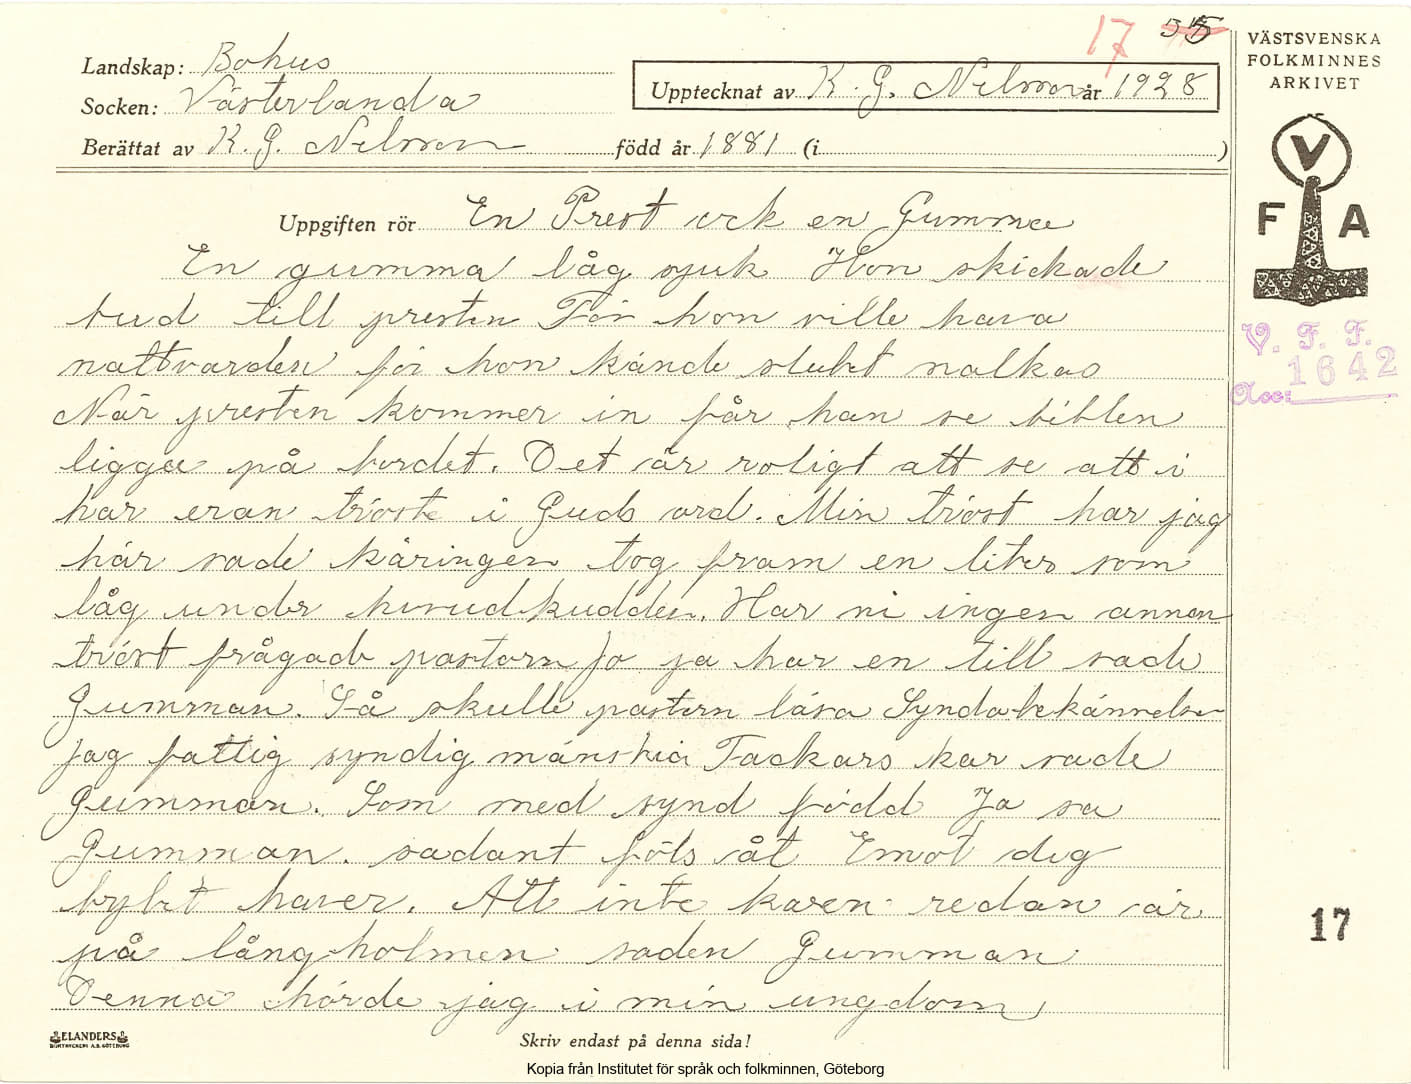 17
VÄSTSVENSKA
FOLKMINNES
ARKIVET
Landskap: Bohus
Socken: Västerlanda
Upptecknat av K. G. Nilsson år 1928
Berättat av K. G. Nilsson född år 1881 (i )
V
F A
Uppgiften rör En Prest ock en Gumma
En gumma låg sjuk Hon skickade
bud till presten För hon ville hava
nattvarden för hon kände slutet nalkas
När presten kommer in får han se biblen
ligga på bordet. Det är roligt att se att i
har eran tröst i Guds ord. Min tröst har jag
här sade käringen tog fram en liter som
låg under huvudkudden. Har ni ingen annan
tröst frågade pastorn Jo ja har en till sade
Gumman. Så skulle pastorn läsa Syndabekännelse
Jag fattig syndig mänskia Tackars kar sade
Gumman. Som med synd född Ja sa
Gumman. sadant föls åt Emot dig
brytet haver. Att inte karen redan är
på långholmen saden Gumman
Denna hörde jag i min ungdom
V. F. F.
Acc: 1642
17
ELANDERS
BOKTRYCKERI A.B. GÖTEBORG
Skriv endast på denna sida!
Kopia från Institutet för språk och folkminnen, Göteborg